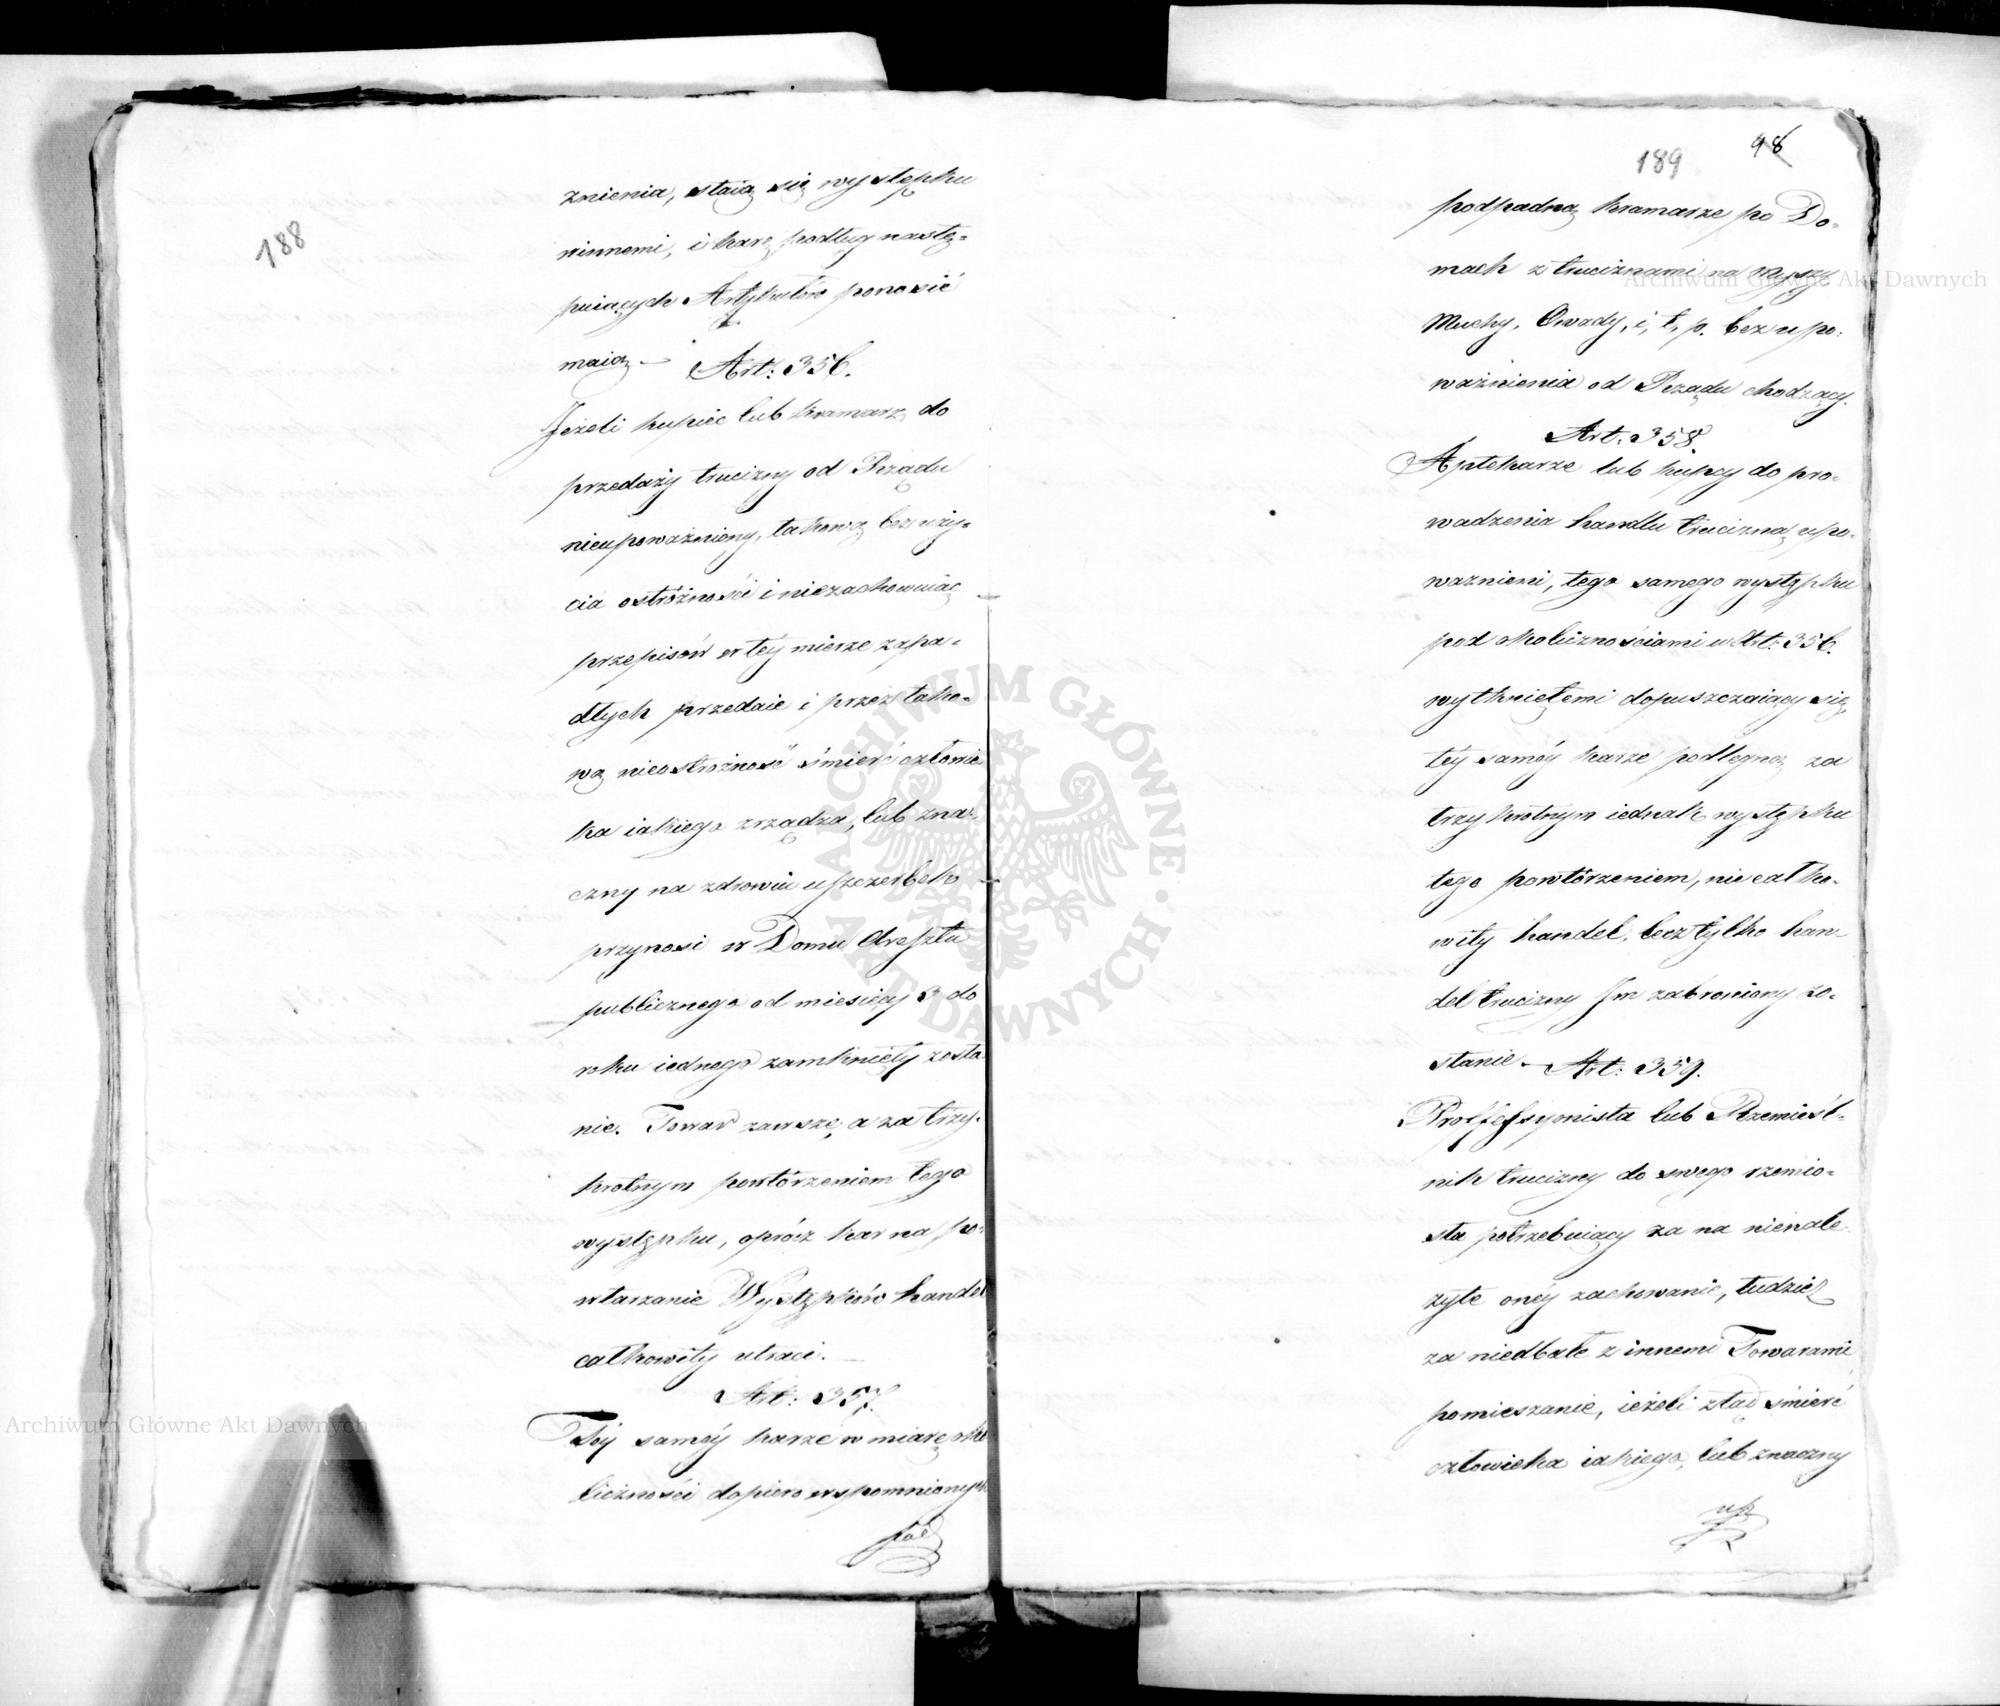 188
znienia, staią się występku
winnemi, i karę podług nastę=
puiących Artykułów ponosić
maią — Art: 356.
Jeżeli kupiec lub kramarz do
przedaży trucizny od Rządu
nieupoważniony, takową bez uży=
cia ostróżności i niezachowuiąc
przepisów w téy mierze zapa=
dłych przedaie i przez tako=
wą nieostrożność śmierć człowie
ka iakiego zrządza, lub zna=
czny na zdrowiu uszczerbek
przynosi w Domu Aresztu
publicznego od miesięcy 3 do
roku iednego zamknięty zosta
nie. Towar zawsze, a za trzy=
krotnym powtórzeniem tego
występku, oprócz kar na po=
wtarzanie Występków handel
całkowity utraci. —
Art: 357.
Téy saméy karze w miarę oko
liczności dopiero wspomnionych
pod
189
98
podpadną kramarze po Do=
mach z truciznami na myszy
Muchy, Owady, i, t, p. bez upo=
ważnienia od Rządu chodzący.
Art. 358.
Aptekarze lub kupcy do pro=
wadzenia handlu trucizną upo=
ważnieni, tego samego występku
pod okolicznościami w Art: 356.
wytkniętemi dopuszczaiący się
téy saméy karze podlegną za
trzykrotnym iednak występku
tego powtórzeniem, nie całko=
wity handel, lecz tylko han=
del trucizny Im zabroniony zo=
stanie — Art: 359.
Proffessyonista lub Rzemieśl=
nik trucizny do swego rzemio=
sła potrzebuiący za na nienale
żyte onéy zachowanie, tudzież
za niedbałe z innemi Towarami
pomieszanie, ieżeli ztąd śmierć
człowieka iakiego, lub znaczny
usz
Archiwum Główne Akt Dawnych
Archiwum Główne Akt Dawnych
ARCHIWUM GŁÓWNE AKT DAWNYCH